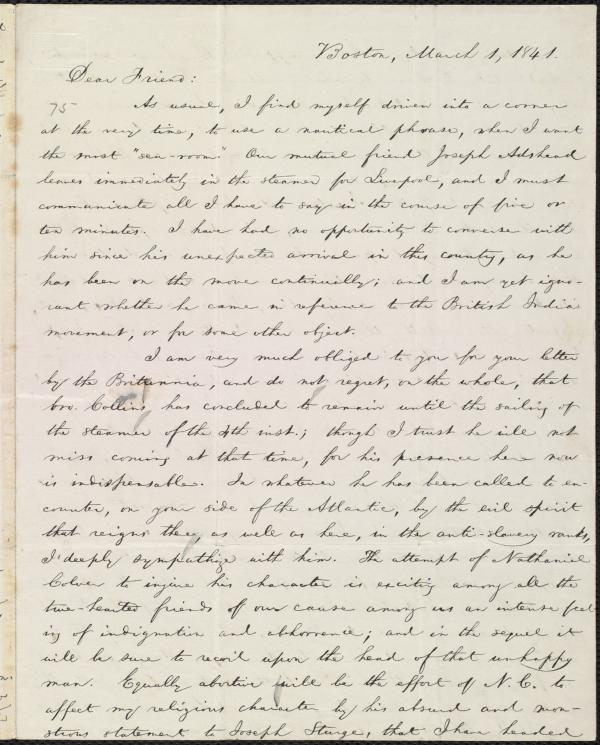 Boston, March 1, 1841.
Dear Friend:
75 As usual, I find myself driven into a corner
at the very time, to use a nautical phrase, when I want
the most "sea-room." Our mutual friend Joseph Adshead
leaves immediately in the steamer for Liverpool, and I must
communicate all I have to say in the course of five or
ten minutes. I have had no opportunity to converse with
him since his unexpected arrival in this country, as he
has been on the move continually; and I am yet igno-
rant whether he came in reference to the British India
movement, or for some other object.
I am very much obliged to you for your letter
by the Britannia, and do not regret, on the whole, that
bro. Collins has concluded to remain until the sailing of
the steamer of the 4th inst.; though I trust he will not
miss coming at that time, for his presence here now
is indispensable. In whatever he has been called to en-
counter, on your side of the Atlantic, by the evil spirit
that reigns there, as well as here, in the anti-slavery ranks,
I deeply sympathize with him. The attempt of Nathaniel
Colver to injure his character is exciting among all the
true-hearted friends of our cause among us an intense feel-
ing of indignation and abhorrence; and in the sequel it
will be sure to recoil upon the head of that unhappy
man. Equally abortive will be the effort of N. C. to
affect my religious character by his absurd and mon-
strous statement to Joseph Sturge, that I have headed